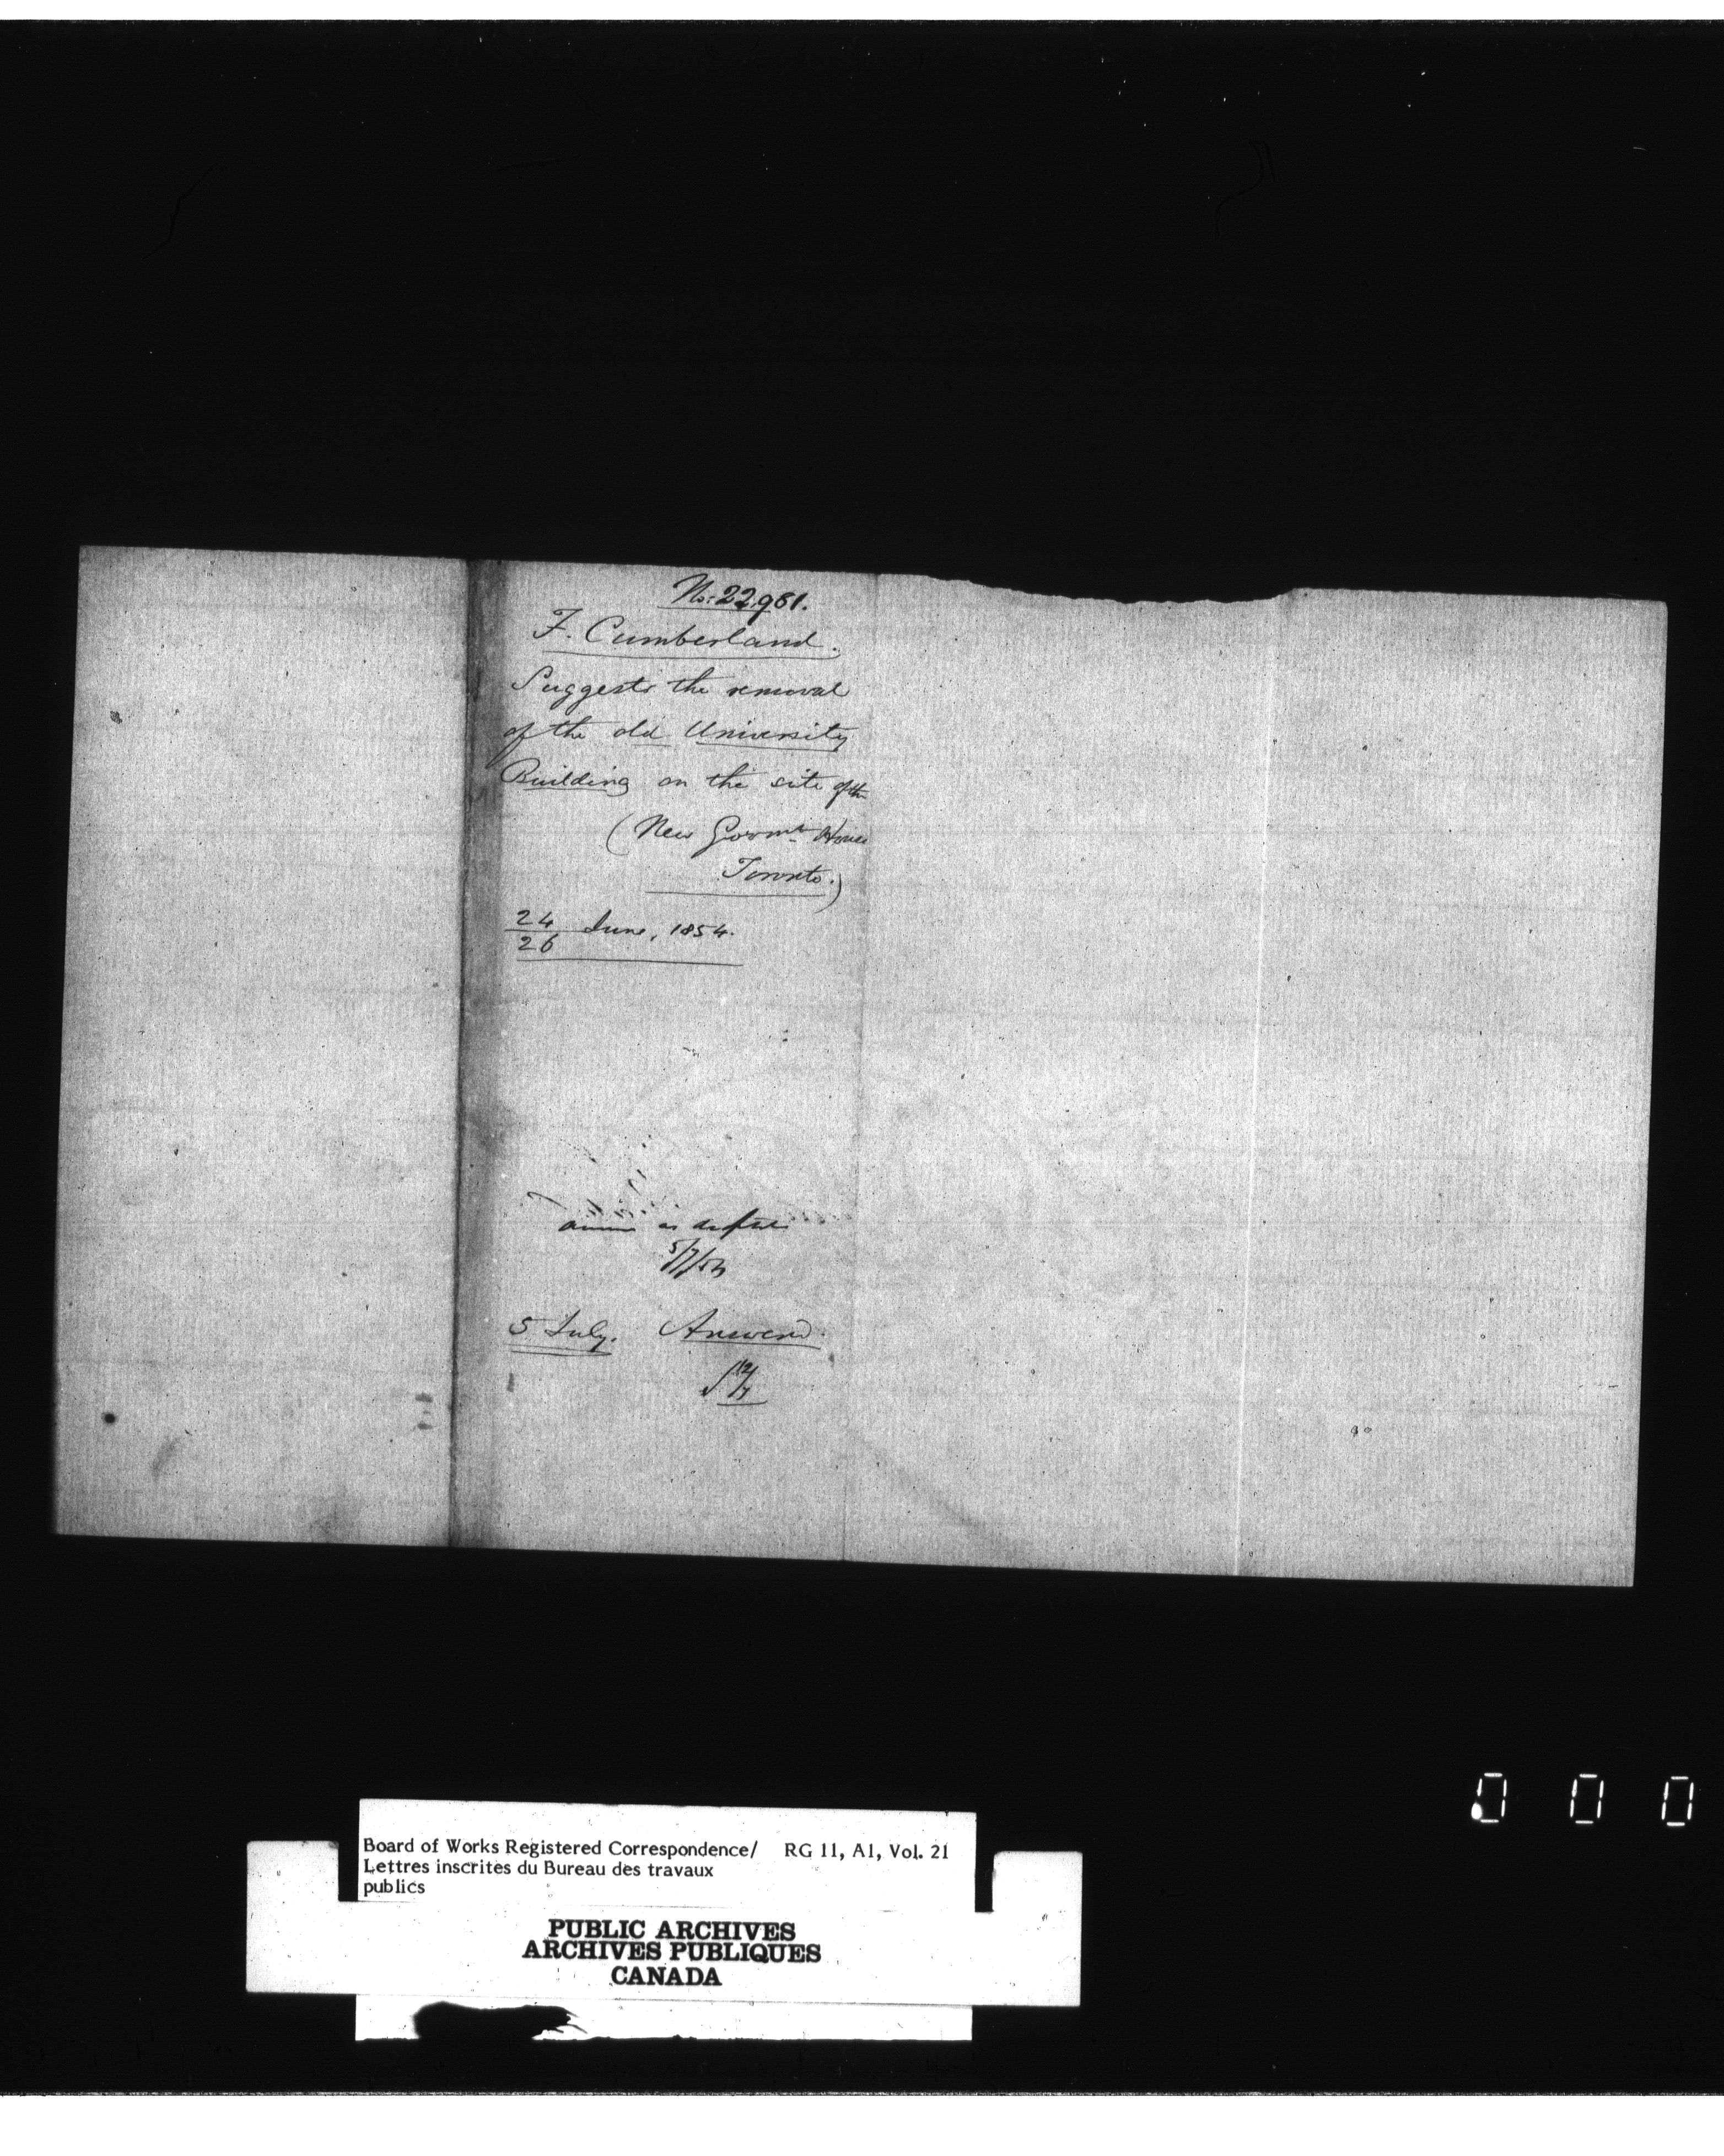 No: 22,981.
F. Cumberland.
Suggests the removal
of the old University
Building on the site of the
(New Govormt House
Toronto.)
24/26 June, 1854.
as
5/7/54
5 July. Answerd.
12/7
Board of Works Registered Correspondence/ RG 11, A1, Vol. 21
Lettres inscrites du Bureau des travaux
publics
PUBLIC ARCHIVES
ARCHIVES PUBLIQUES
CANADA
0 0 0